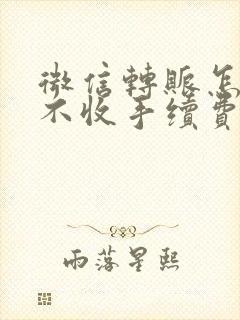 微信轉賬怎
不收手續費
雨落星熙